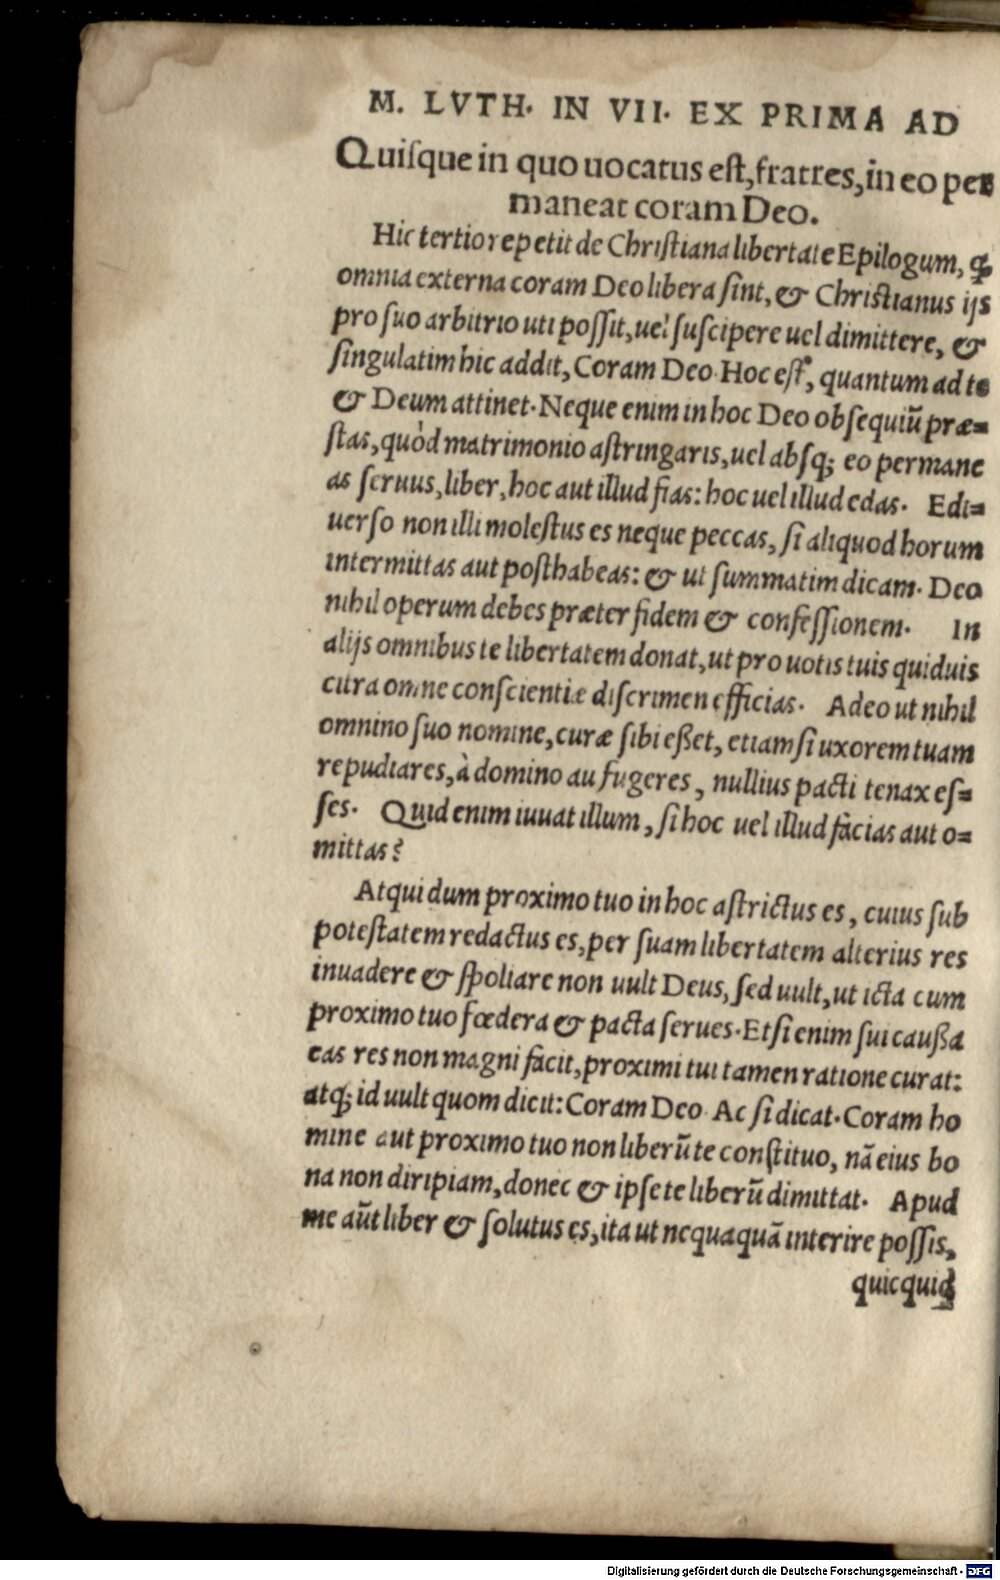 M. LVTH. IN VII. EX PRIMA AD
Quiſque in quo uocatus eſt, fratres, in eo per
maneat coram Deo.
Hic tertio repetit de Chriſtiana libertate Epilogum, ꝙ
omnia externa coram Deo libera ſint, & Chriſtianus ijs
pro ſuo arbitrio uti poſſit, uel ſuſcipere uel dimittere, &
ſingulatim hic addit, Coram Deo. Hoc eſt, quantum ad te
& Deum attinet. Neque enim in hoc Deo obſequiū præ=
ſtas, quòd matrimonio aſtringaris, uel abſq; eo permane
as ſeruus, liber, hoc aut illud fias: hoc uel illud edas. Edi=
uerſo non illi moleſtus es neque peccas, ſi aliquod horum
intermittas aut poſthabeas: & ut ſummatim dicam. Deo
nihil operum debes præter fidem & confeſſionem. In
alijs omnibus te libertatem donat, ut pro uotis tuis quiduis
citra omne conſcientiæ diſcrimen efficias. Adeo ut nihil
omnino ſuo nomine, curæ ſibi eßet, etiam ſi uxorem tuam
repudiares, à domino aufugeres, nullius pacti tenax eſ=
ſes. Quid enim iuuat illum, ſi hoc uel illud facias aut o=
mittas?
Atqui dum proximo tuo in hoc aſtrictus es, cuius ſub
poteſtatem redactus es, per ſuam libertatem alterius res
inuadere & ſpoliare non uult Deus, ſed uult, ut icta cum
proximo tuo fœdera & pacta ſerues. Etſi enim ſui caußa
eas res non magni facit, proximi tui tamen ratione curat:
atq; id uult quom dicit: Coram Deo. Ac ſi dicat. Coram ho
mine aut proximo tuo non liberū te conſtituo, nā eius bo
na non diripiam, donec & ipſe te liberū dimittat. Apud
me aūt liber & ſolutus es, ita ut nequaquā interire poſſis,
quicquid
Digitalisierung gefördert durch die Deutsche Forschungsgemeinschaft - DFG